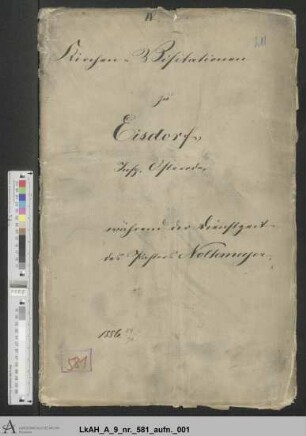 Kirchen-Visitationen
zu
Eisdorf,
Insp. Osterode,
während der Dienstzeit
des Pastors Noltemeyer.
1886
581
LkAH_A_9_nr._581_aufn._001